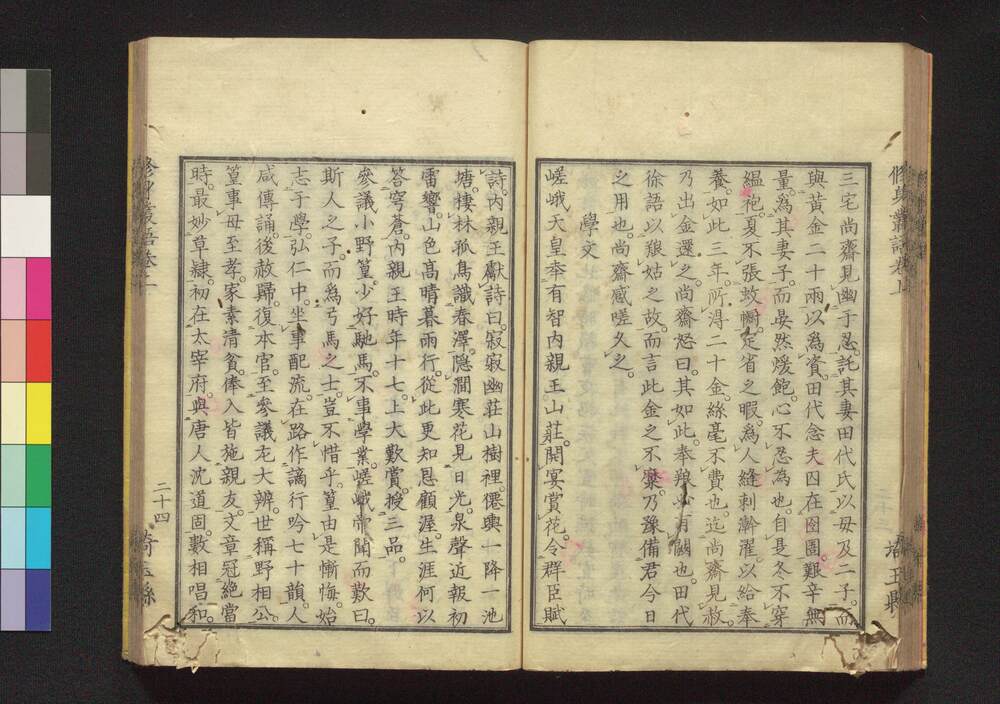 三宅尚齋見幽于忍。託其妻田代氏以母及二子。而
與黃金二十兩以爲資。田代念夫囚在囹圄。艱辛無
量。爲其妻子。而晏然煖飽。心不忍為也。自是冬不穿
縕袍。夏不張蚊幮。定省之暇。爲人縫刺澣濯。以給奉
養。如此三年。所得二十金。絲毫不費也。迄尚齋見赦。
乃出金還之。尚齋怒曰。其如此。奉親必有闕也。田代
徐語以狼姑之故。而言此金之不糜。乃豫備君今日
之用也。尚齋感嗟久之。
學文
嵯峨天皇幸有智内親王山莊。開宴賞花。令群臣賦
詩。内親王獻詩曰。寂寂幽莊山樹裡。僊輿一降一池
塘。棲林孤鳥識春澤。隱澗寒花見日光。泉聲近報初
雷響。山色高晴暮雨行。從此更知恩顧渥。生涯何以
答穹蒼。内親王時年十七。上大歎賞。授三品。
參議小野篁。少好馳馬。不事學業。嵯峨帝聞而歎曰。
斯人之子。而爲弓馬之士。豈不惜乎。篁由是慚悔。始
志于學。弘仁中。坐事配流。在路作謫行吟七十韻。人
咸傳誦。後赦歸。復本官。至參議左大辨。世稱野相公。
篁事母至孝。家素清貧。俸入皆施親友。文章冠絶當
時。最妙草隷。初在太宰府。與唐人沈道固。數相唱和。
二十四